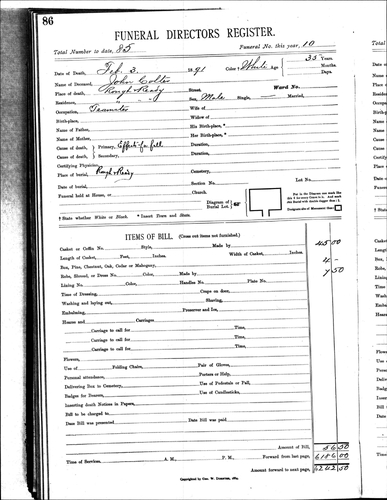 86
FUNERAL DIRECTORS REGISTER.
Total Number to date, 85 Funeral No. this year, 10
Date of Death, Feb. 3. 1891 Color † White Age 35 Years.
Months.
Days.
Name of Deceased, John Colter
Place of death, Rough & Ready Street, Ward No.
Residence, " " " Sex, Male Single, Married,
Occupation, Teamster Wife of
Birth-place, Widow of
Name of Father, His Birth-place, *
Name of Mother, Her Birth-place, *
Cause of death, Primary, Effects of a fall Duration,
Cause of death, Secondary, Duration,
Certifying Physician,
Place of burial, Rough & Ready Cemetery,
Date of burial, Section No. Lot No.
Funeral held at House, or Church.
Diagram of Burial Lot.
Put in the Diagram one mark like this I for every corpse in it. And mark the burial with double lines thus II.
Designate site of Monument thus
† State whether White or Black. * Insert Town and State.
ITEMS OF BILL. (Cross out items not furnished.)
Casket or Coffin No. Style, Made by 45 00
Length of Casket, Feet, Inches. Width of Casket, Inches.
Box, Pine, Chestnut, Oak, Cedar or Mahogany, 4 -
Robe, Shroud, or Dress No. Color, Made by 7 50
Lining No. Color, Handles No. Plate No.
Time of Dressing, Corpse on door,
Washing and laying out, Shaving,
Embalming, Preserver and Ice,
Hearse and Carriages
Carriage to call for Time,
Carriage to call for Time,
Carriage to call for Time,
Flowers,
Use of Folding Chairs, Pair of Gloves,
Personal attendance, Porters or Help,
Delivering Box to Cemetery, Use of Pedestals or Pall,
Badges for Bearers, Use of Candlesticks,
Inserting death Notices in Papers,
Bill to be charged to
Date Bill was presented Date Bill was paid
Amount of Bill, 56 50
Time of Services, A. M., P. M., Forward from last page, 6186 00
Amount forward to next page, 6242 50